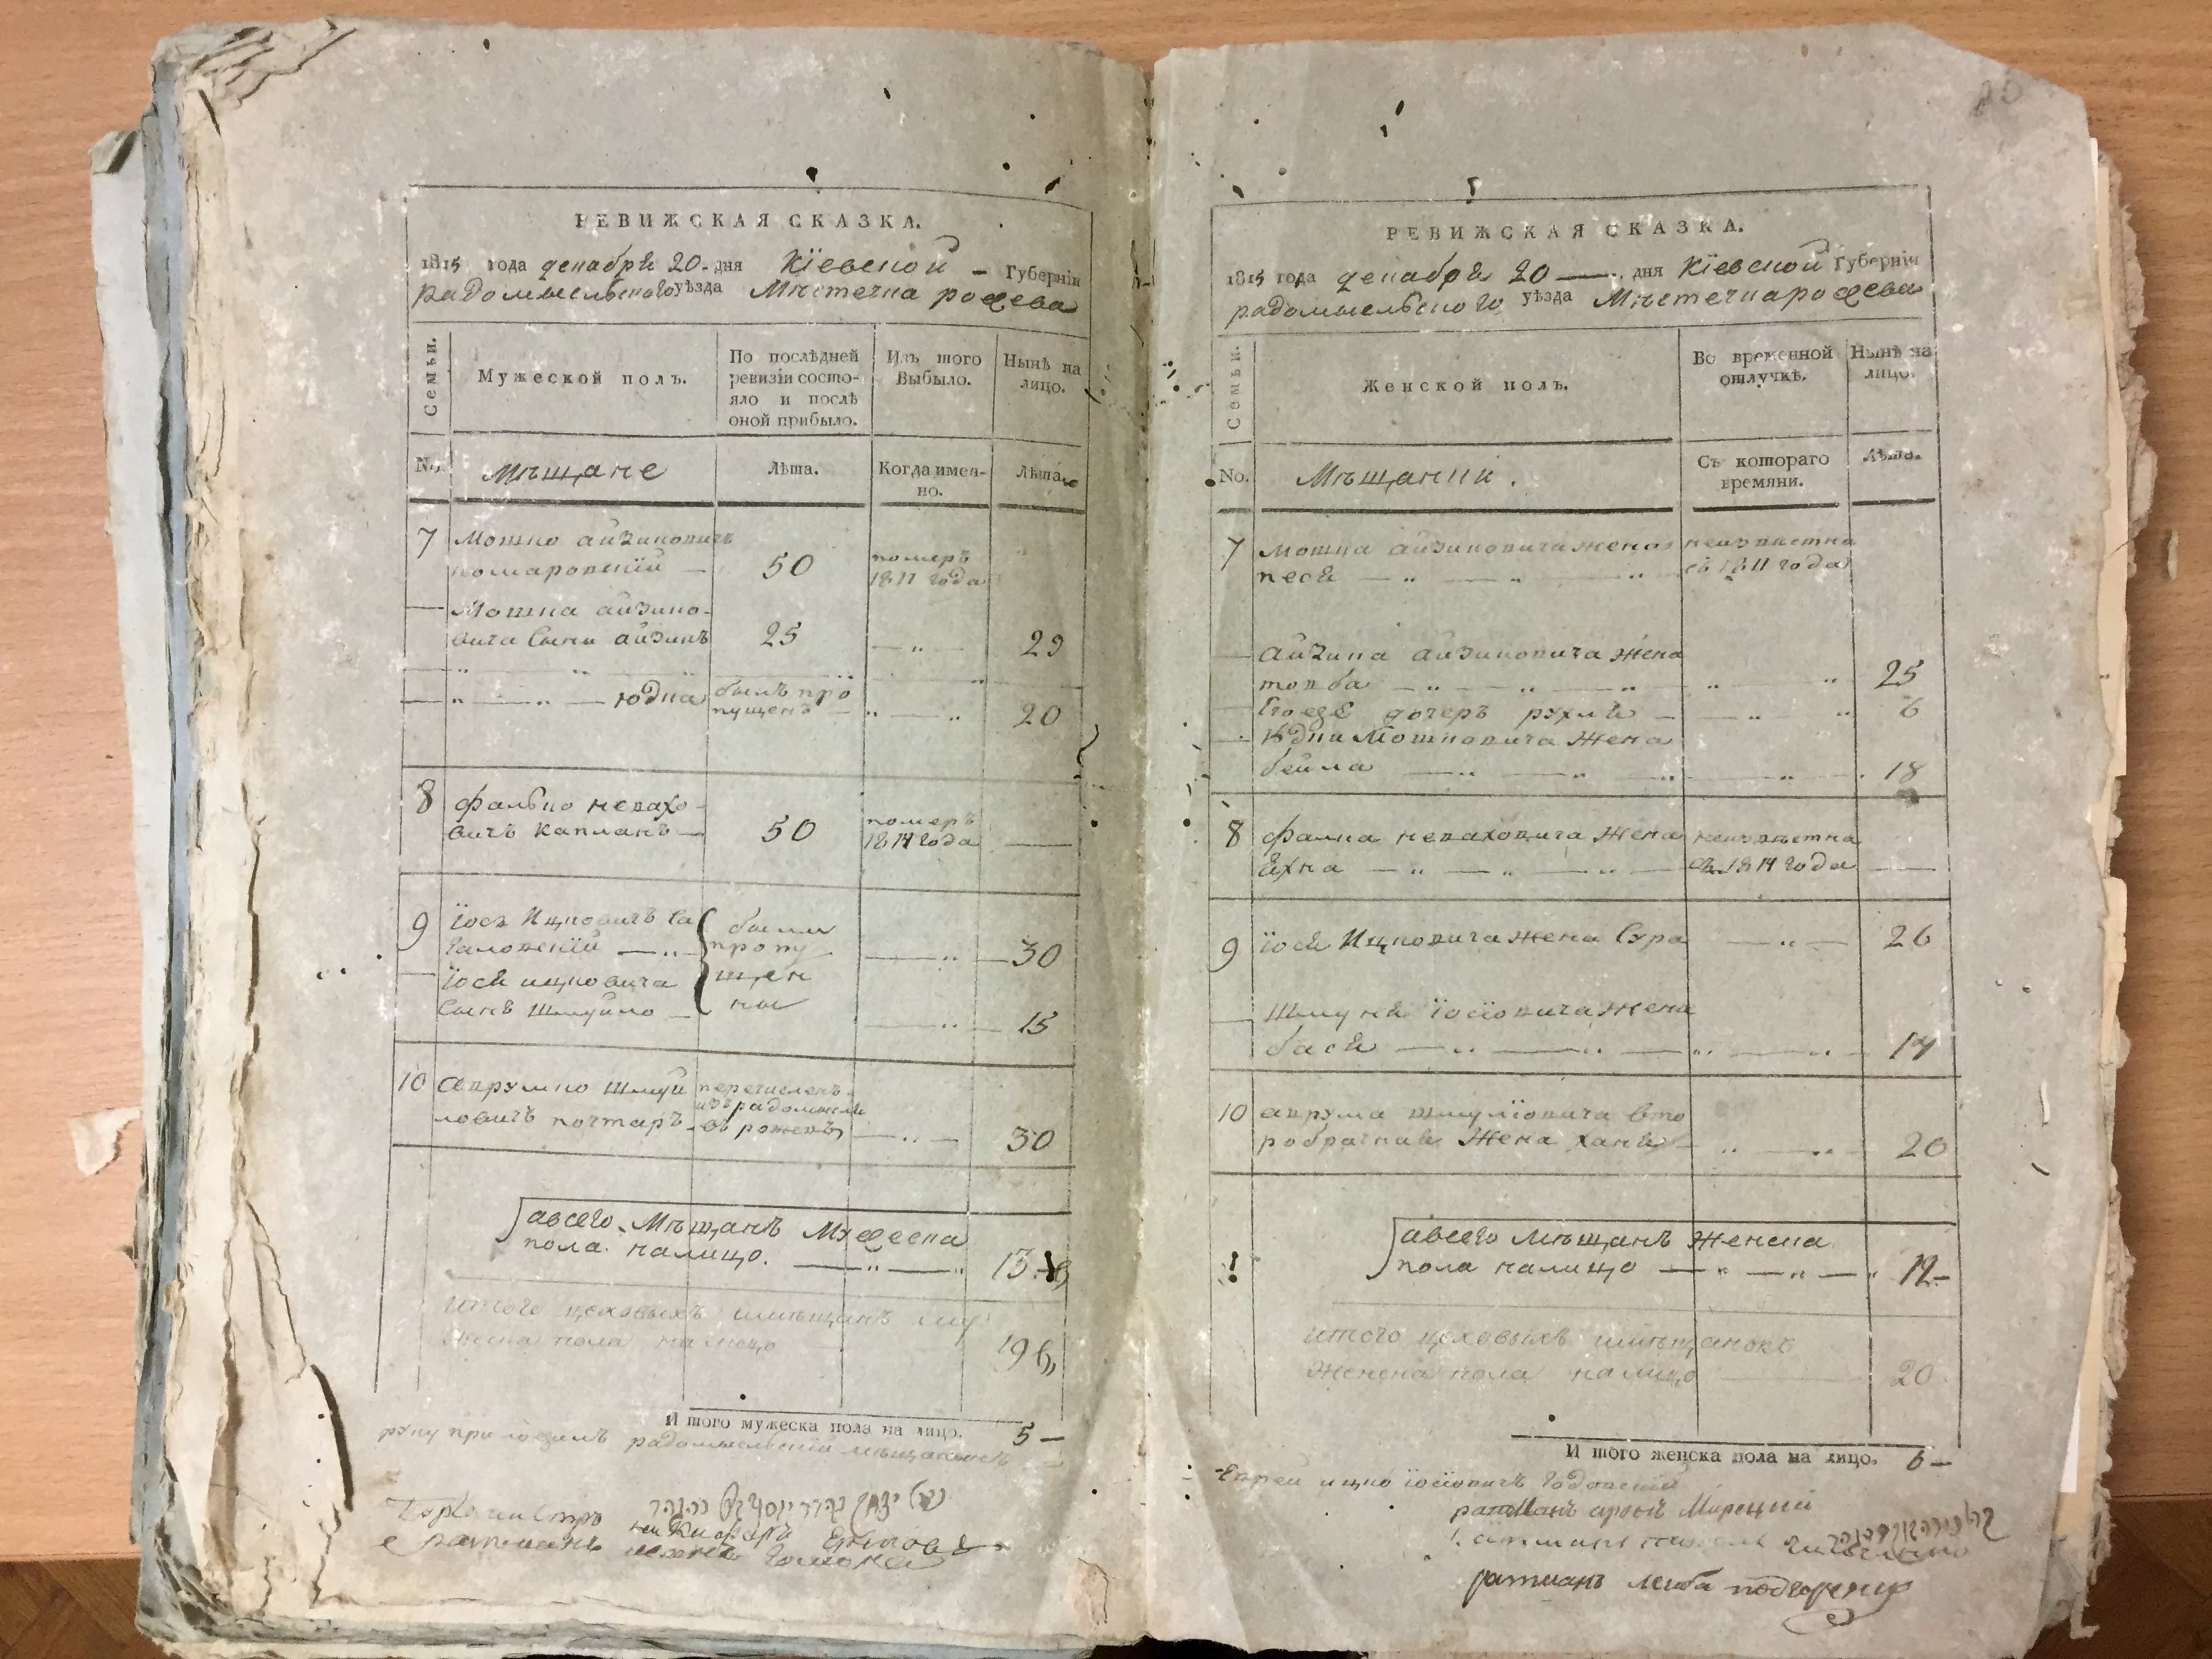 РЕВИЖСКАЯ СКАЗКА.
1815 года декабря 20 - дня Кїевской - Губернїи
радомысльского уѣзда Мѣстечка рожева
Семьи.
Мужеской полъ.
По послѣдней
ревизїи состо-
яло и послѣ
оной прибыло.
Изъ того
Выбыло.
Нынѣ на
лицо.
No.
Мѣщане
Лѣта.
Когда имен-
но.
Лѣта.
7
Мошко айзиковичъ
комаровскїй —
50
померъ
1811 года
Мошка айзико-
вича Сыни айзикъ
25
— „ —
29
„ — „ — юдка
былъ про
пущенъ —
„ — „
20
8
фалько невахо-
вичъ капланъ —
50
померъ
1814 года
—
9
Їось Ицковичъ Са
галовскїй — „ —
были
пропу
— „ —
30
Їося ицковича
Сынъ Шмуйло —
щен
ны
— „ —
15
10
аврумко шмуй
ловичъ почтаръ -
перечисленъ
изъ радомысля
въ рожевъ
— „ —
30
авсего Мѣщанъ Мужеска
пола налицо. — „ — „
13
итого цеховыхъ имѣщанъ му
жеска пола налицо
19
И того мужеска пола на лицо.
5 —
руку приложилъ радомысльскїй мѣщанинъ
20
РЕВИЖСКАЯ СКАЗКА.
1815 года декабря 20 — дня Кїевской Губернїи
радомысльского уѣзда Мѣстечка рожева
Семьи.
Женской полъ.
Во временной
отлучкѣ.
Нынѣ на
лицо.
No.
Мѣщанки.
Съ котораго
времяни.
Лѣта.
7
Мошка айзиковича жена
неизвѣстна
песя — „ — „ — „
съ 1811 года
айзика айзиковича жена
товба — „ — „ — „
„ „
25
Егожѣ дочеръ рухля —
— „ „
6
Юдки Мошковича жена
бейла — „ — „ — „
— „ —
18
8
фалка неваховича жена
неизвѣстна
Ехна — „ — „ — „ —
съ 1814 года
—
9
Їося Ицковича жена Сура
— „ —
26
Шмуйля Їосїовича жена
бася — „ — „ — „ — „
14
10
аврума шмулїовича вто
робрачная жена ханя —
„ — „
20
авсего мѣщанъ женска
пола налицо — „ — „ — „
12 —
итого цеховыхъ имѣщанокъ
женска пола налицо
20
И того женска пола на лицо.
6 —
Еврей ицко їосїовичъ
ратманъ аронъ Мирецкий
ратманъ лейба подгорецкий